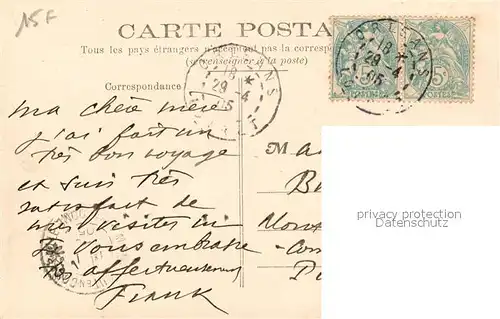 15F
CARTE POSTA
Tous les pays étrangers n'acceptent pas la correspon
(se renseigner à la poste)
Correspondance
ma chère mère
j'ai fait un
très bon voyage
et suis très
satisfait de
mes visites ici
je vous embrasse
très affectueusement
Frank
M
ORLEANS
18
29 4
05
ORLEANS
18
29 4
05
5
privacy protection
Datenschutz